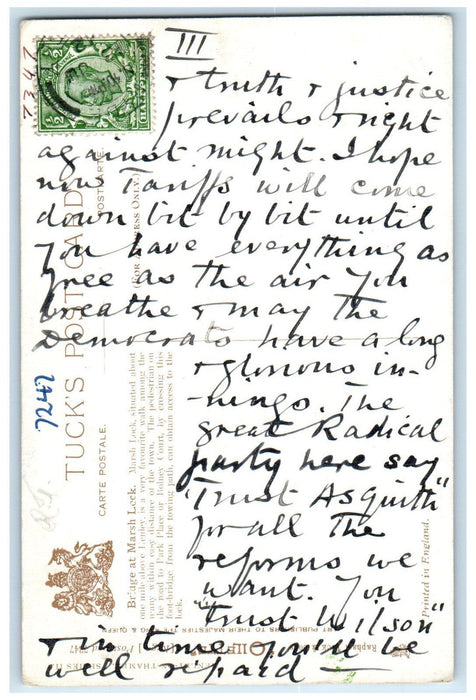 III
& truth & justice
prevails & right
against might. I hope
now Tariffs will come
down bit by bit until
you have everything as
free as the air you
breathe & may the
Democrats have a long
& glorious in-
-nings. The
great Radical
party here say
"Trust Asquith"
for all the
reforms we
want. You
"trust Wilson"
& in time you'll be
well repaid
7347
7247
TUCK'S POST CARD
CARTE POSTALE.
POSTKARTE.
Bridge at Marsh Lock. Marsh Lock, situated about
one mile above Henley, is a very favourite walk among the
many within easy distance of the town. The pedestrian on
the road to Park Place or Bolney Court, by crossing this
foot-bridge from the towing path, can obtain access to the
lock.
ART PUBLISHERS TO THEIR MAJESTIES THE KING & QUEEN
Printed in England.
HALFPENNY